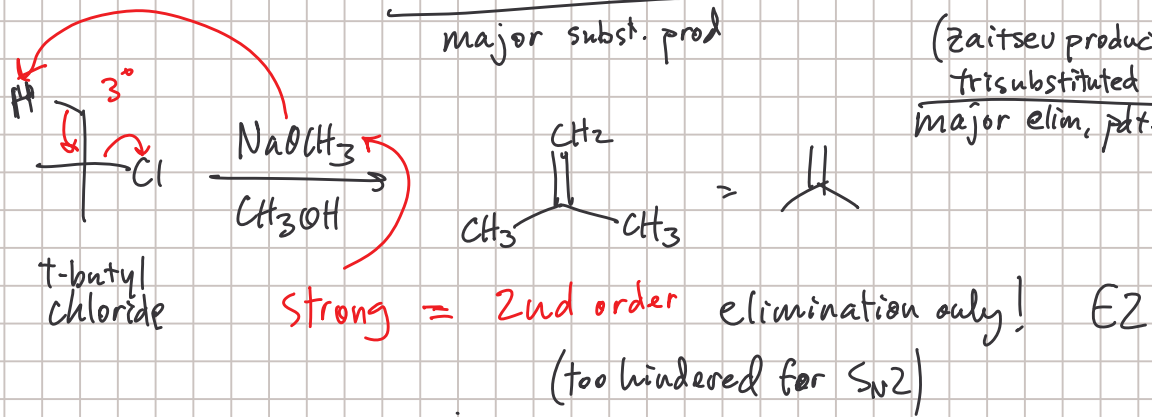 major subst. prod
(Zaitsev produc
trisubstituted
major elim, pdt.
H
3°
Cl
NaOCH3
CH3OH
CH2
CH3
CH3
=
t-butyl
chloride
strong = 2nd order elimination only! E2
(too hindered for SN2)